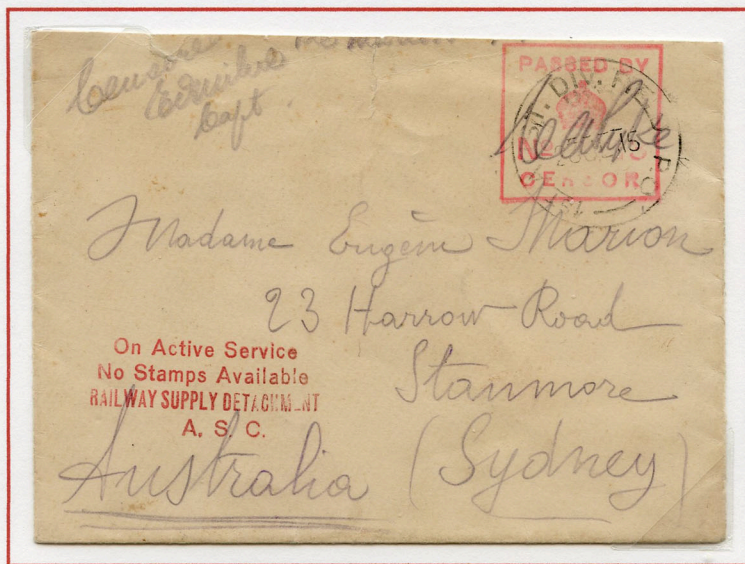 Censored
Capt
PASSED BY
No
CENSOR
DIV. FIELD P.O.
Madame Eugène Marion
23 Harrow Road
Stanmore
(Sydney)
Australia
On Active Service
No Stamps Available
RAILWAY SUPPLY DETACHMENT
A. S. C.